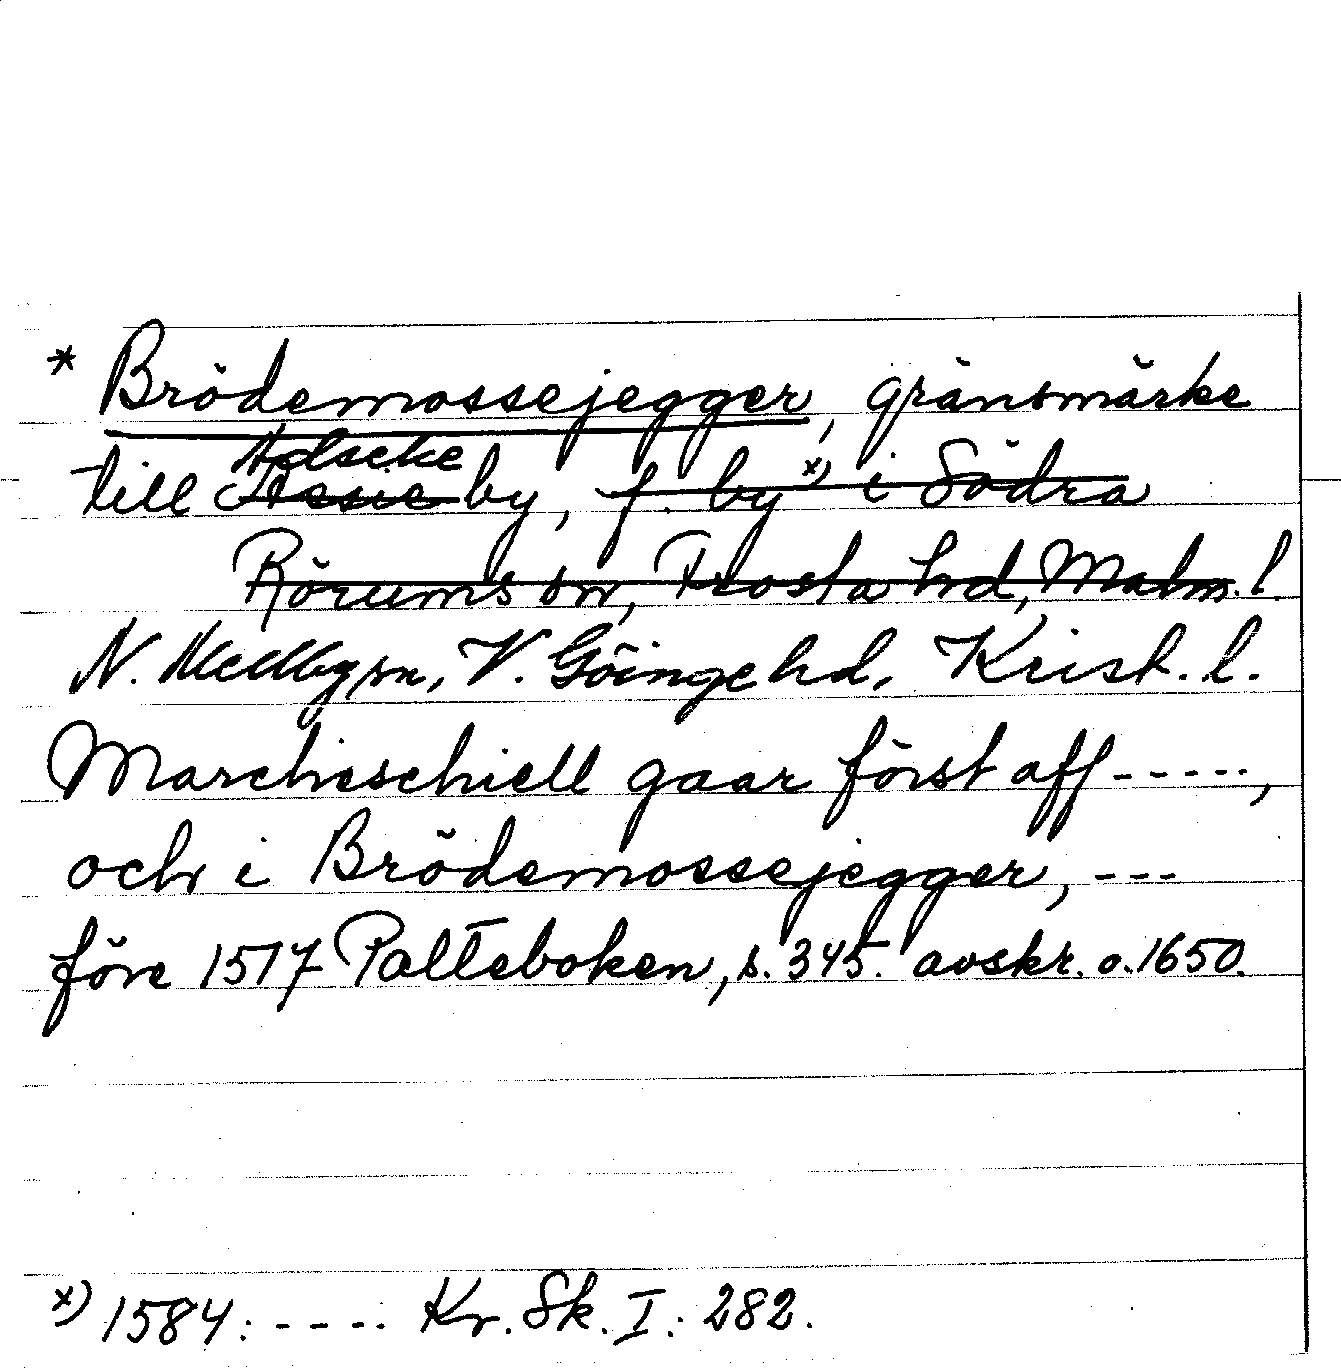 * Brödemossejegger, gränsmärke
Adseke
till Assie by, f. by x) i Södra
Rörums sn, Frosta hd, Malm. l.
N. Mellby sn, V. Göinge hd, Krist. l.
Marcheschiell gaar först aff -----,
och i Brödemossejegger, ---
före 1517 Palteboken, s. 345. avskr. o. 1650.
x) 1584: ---- Kr. Sk. I: 282.